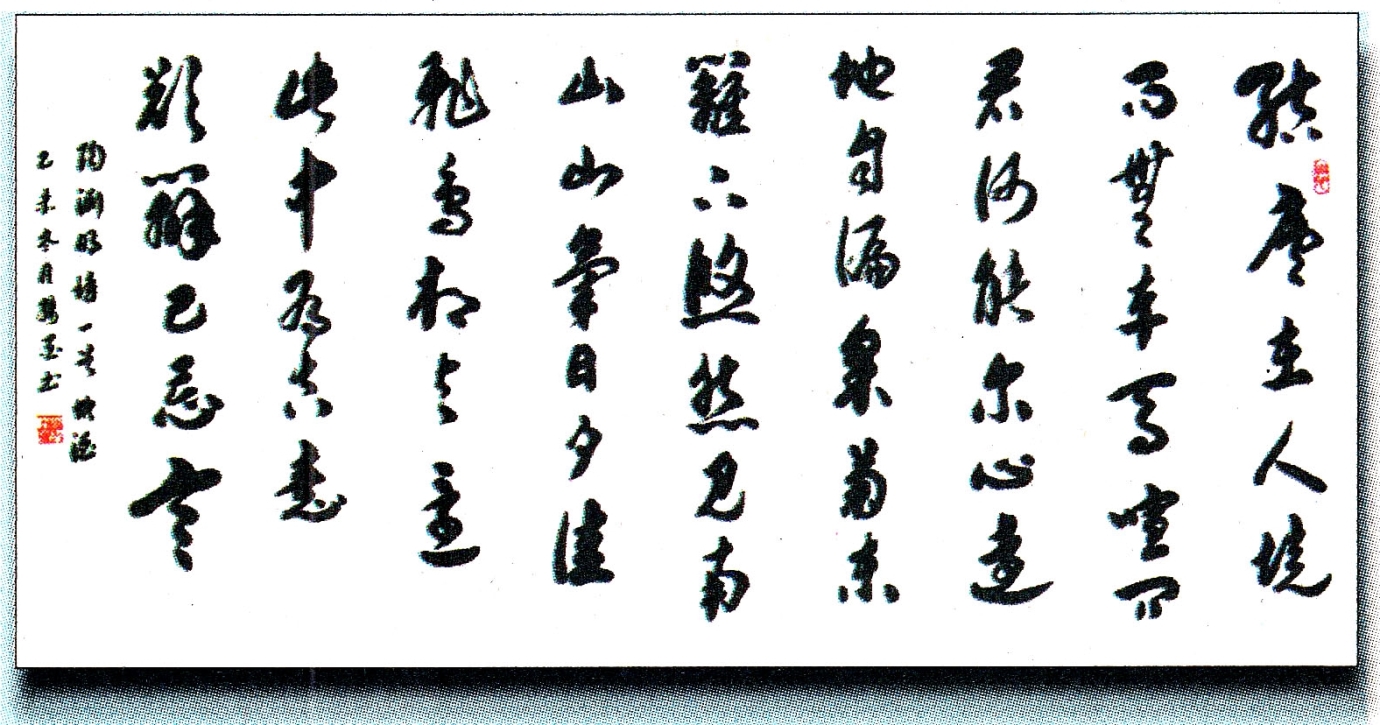 結廬在人境
而無車馬喧問
君何能尔心遠
地自偏采菊东
籬下悠然見南
山山氣日夕佳
飛鳥相与還
此中有真意
欲辯已忘言
陶淵明詩一首飲酒
乙未冬月墨书